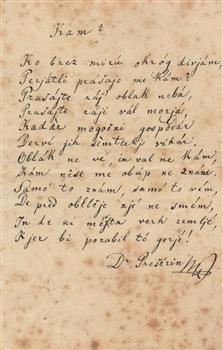 Kam?
Ko brez mirú okróg divjàm,
Perjátli prašajo me kàm?
Prašajte ráj' oblak nebá,
Prašajte ráji vál morjá,
Kadàr mogočni gospodár
Derví jih sèmtertjè vihár.
Oblàk ne vé, in val ne kàm,
Kàm nêse me obúp ne znám.
Samó to znàm, samó to vém,
De pred obličje njé ne smém,
In de ni mésta verh zemljé,
Kjer bi pozabil tó gorjé!
Dr Prešérin